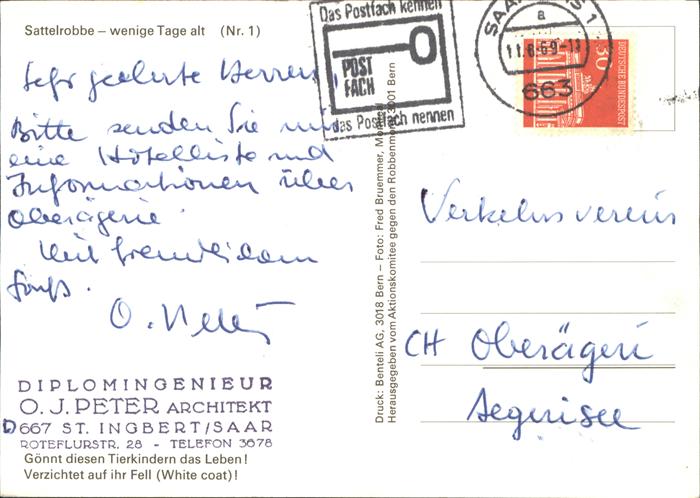 Sattelrobbe – wenige Tage alt (Nr. 1)
Sehr geehrte Herren,
Bitte senden Sie mir
eine Hotelliste und
Informationen über
Oberägerie.
Mit freundlichem
Gruß.
O. Peter
DIPLOMINGENIEUR
O. J. PETER ARCHITEKT
D667 ST. INGBERT/SAAR
ROTEFLURSTR. 28 - TELEFON 3678
Gönnt diesen Tierkindern das Leben!
Verzichtet auf ihr Fell (White coat)!
Druck: Benteli AG, 3018 Bern – Foto: Fred Bruemmer, Montreal
Herausgegeben vom Aktionskomitee gegen den Robbenmord, 3001 Bern
Das Postfach kennen
POST
FACH
das Postfach nennen
a
11.6.69-13
663
30
DEUTSCHE BUNDESPOST
Verkehrsverein
CH Oberägeri
Aegerisee